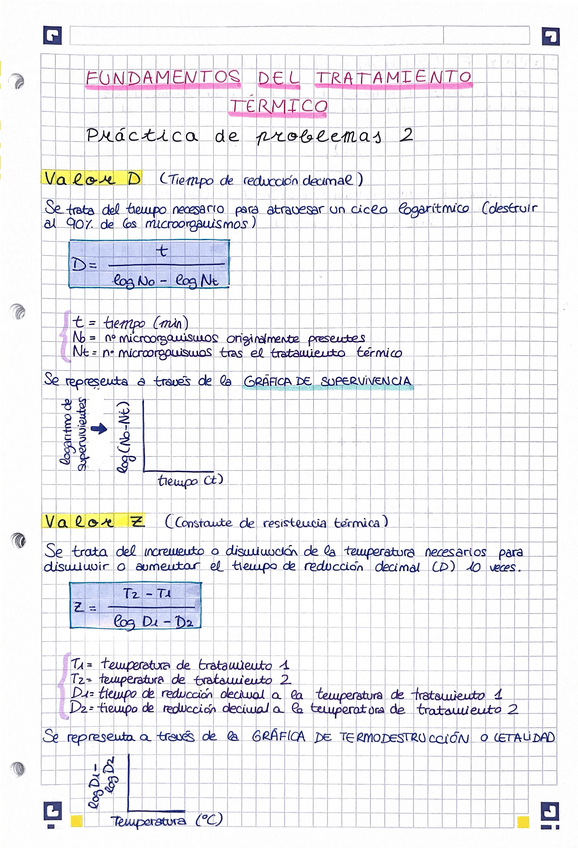 FUNDAMENTOS DEL TRATAMIENTO
TÉRMICO
Práctica de problemas 2
Valor D (Tiempo de reducción decimal)
Se trata del tiempo necesario para atravesar un ciclo logarítmico (destruir
al 90% de los microorganismos)
D = t / log No - log Nt
t = tiempo (min)
No = nº microorganismos originalmente presentes
Nt = nº microorganismos tras el tratamiento térmico
Se representa a través de la GRÁFICA DE SUPERVIVENCIA
logaritmo de
supervivientes
→
log (No-Nt)
tiempo (t)
Valor Z (Constante de resistencia térmica)
Se trata del incremento o disminución de la temperatura necesarios para
disminuir o aumentar el tiempo de reducción decimal (D) 10 veces.
Z = T2 - T1 / log D1 - D2
T1 = temperatura de tratamiento 1
T2 = temperatura de tratamiento 2
D1 = tiempo de reducción decimal a la temperatura de tratamiento 1
D2 = tiempo de reducción decimal a la temperatura de tratamiento 2
Se representa a través de la GRÁFICA DE TERMODESTRUCCIÓN O LETALIDAD
log D1 -
log D2
Temperatura (ºC)